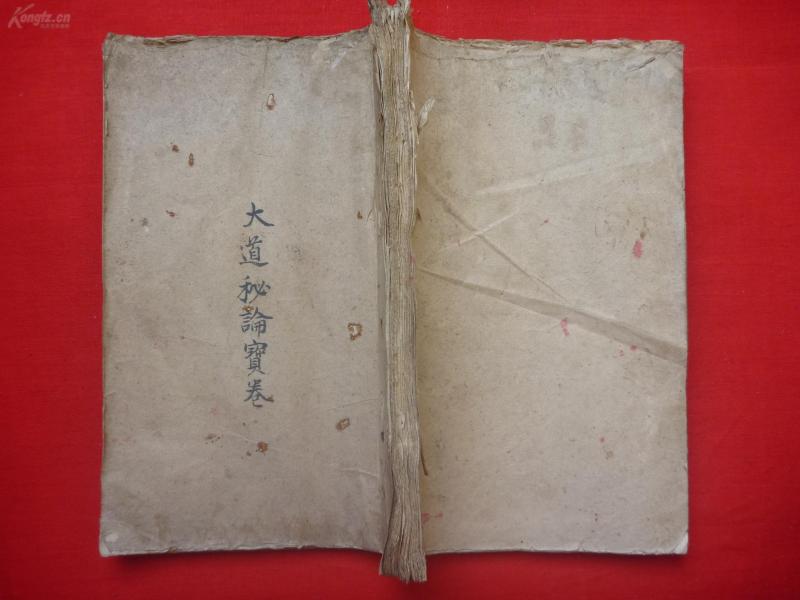 Kongfz.cn
大道秘論寶卷